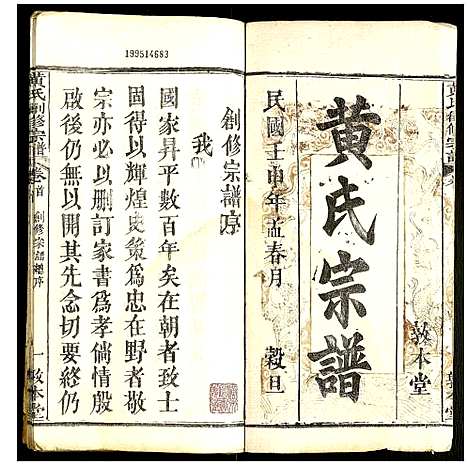 黃氏宗譜
敦本堂
民國壬申年孟春月
穀旦
199514683
創修宗譜序
我
國家昇平數百年矣在朝者致士
固得以輝煌史策為忠在野者敬
宗亦必以刪訂家書為孝倘情殷
啟後仍無以開其先念切要終仍
黃氏創修宗譜
卷首
創修宗譜序
一
敦本堂